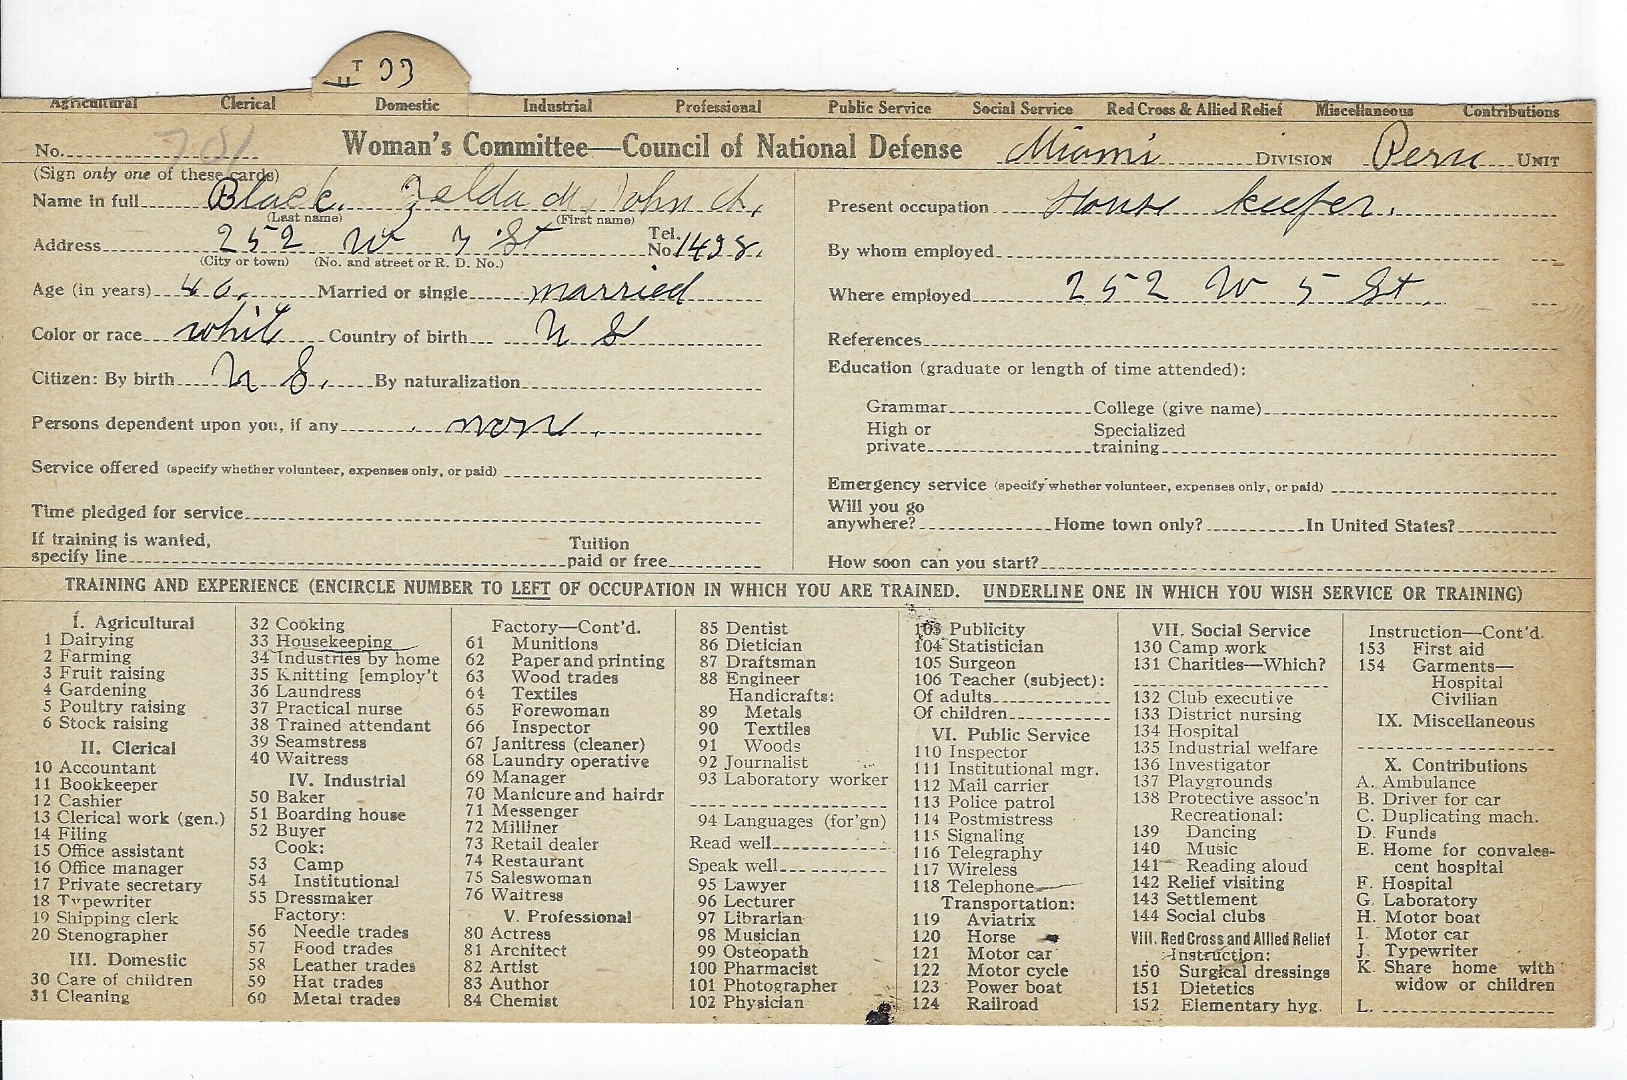 33
Agricultural Clerical Domestic Industrial Professional Public Service Social Service Red Cross & Allied Relief Miscellaneous Contributions
No. 781 Woman's Committee—Council of National Defense Miami DIVISION Peru UNIT
(Sign only one of these cards)
Name in full Black, Zelda M, John A,
(Last name) (First name)
Address 252 W 5 St Tel. No. 1498.
(City or town) (No. and street or R. D. No.)
Age (in years) 40. Married or single married
Color or race white Country of birth U S
Citizen: By birth U S. By naturalization
Persons dependent upon you, if any none.
Service offered (specify whether volunteer, expenses only, or paid)
Time pledged for service
If training is wanted,
specify line Tuition paid or free
Present occupation House keeper.
By whom employed
Where employed 252 W 5 St.
References
Education (graduate or length of time attended):
Grammar College (give name)
High or private Specialized training
Emergency service (specify whether volunteer, expenses only, or paid)
Will you go
anywhere? Home town only? In United States?
How soon can you start?
TRAINING AND EXPERIENCE (ENCIRCLE NUMBER TO LEFT OF OCCUPATION IN WHICH YOU ARE TRAINED. UNDERLINE ONE IN WHICH YOU WISH SERVICE OR TRAINING)
I. Agricultural
1 Dairying
2 Farming
3 Fruit raising
4 Gardening
5 Poultry raising
6 Stock raising
II. Clerical
10 Accountant
11 Bookkeeper
12 Cashier
13 Clerical work (gen.)
14 Filing
15 Office assistant
16 Office manager
17 Private secretary
18 Typewriter
19 Shipping clerk
20 Stenographer
III. Domestic
30 Care of children
31 Cleaning
32 Cooking
33 Housekeeping
34 Industries by home
35 Knitting [employ't
36 Laundress
37 Practical nurse
38 Trained attendant
39 Seamstress
40 Waitress
IV. Industrial
50 Baker
51 Boarding house
52 Buyer
Cook:
53 Camp
54 Institutional
55 Dressmaker
Factory:
56 Needle trades
57 Food trades
58 Leather trades
59 Hat trades
60 Metal trades
Factory—Cont'd.
61 Munitions
62 Paper and printing
63 Wood trades
64 Textiles
65 Forewoman
66 Inspector
67 Janitress (cleaner)
68 Laundry operative
69 Manager
70 Manicure and hairdr
71 Messenger
72 Milliner
73 Retail dealer
74 Restaurant
75 Saleswoman
76 Waitress
V. Professional
80 Actress
81 Architect
82 Artist
83 Author
84 Chemist
85 Dentist
86 Dietician
87 Draftsman
88 Engineer
Handicrafts:
89 Metals
90 Textiles
91 Woods
92 Journalist
93 Laboratory worker
94 Languages (for'gn)
Read well
Speak well
95 Lawyer
96 Lecturer
97 Librarian
98 Musician
99 Osteopath
100 Pharmacist
101 Photographer
102 Physician
103 Publicity
104 Statistician
105 Surgeon
106 Teacher (subject):
Of adults
Of children
VI. Public Service
110 Inspector
111 Institutional mgr.
112 Mail carrier
113 Police patrol
114 Postmistress
115 Signaling
116 Telegraphy
117 Wireless
118 Telephone
Transportation:
119 Aviatrix
120 Horse
121 Motor car
122 Motor cycle
123 Power boat
124 Railroad
VII. Social Service
130 Camp work
131 Charities—Which?
132 Club executive
133 District nursing
134 Hospital
135 Industrial welfare
136 Investigator
137 Playgrounds
138 Protective assoc'n
Recreational:
139 Dancing
140 Music
141 Reading aloud
142 Relief visiting
143 Settlement
144 Social clubs
VIII. Red Cross and Allied Relief
Instruction:
150 Surgical dressings
151 Dietetics
152 Elementary hyg.
Instruction—Cont'd.
153 First aid
154 Garments—
Hospital
Civilian
IX. Miscellaneous
X. Contributions
A. Ambulance
B. Driver for car
C. Duplicating mach.
D. Funds
E. Home for convales-
cent hospital
F. Hospital
G. Laboratory
H. Motor boat
I. Motor car
J. Typewriter
K. Share home with
widow or children
L.